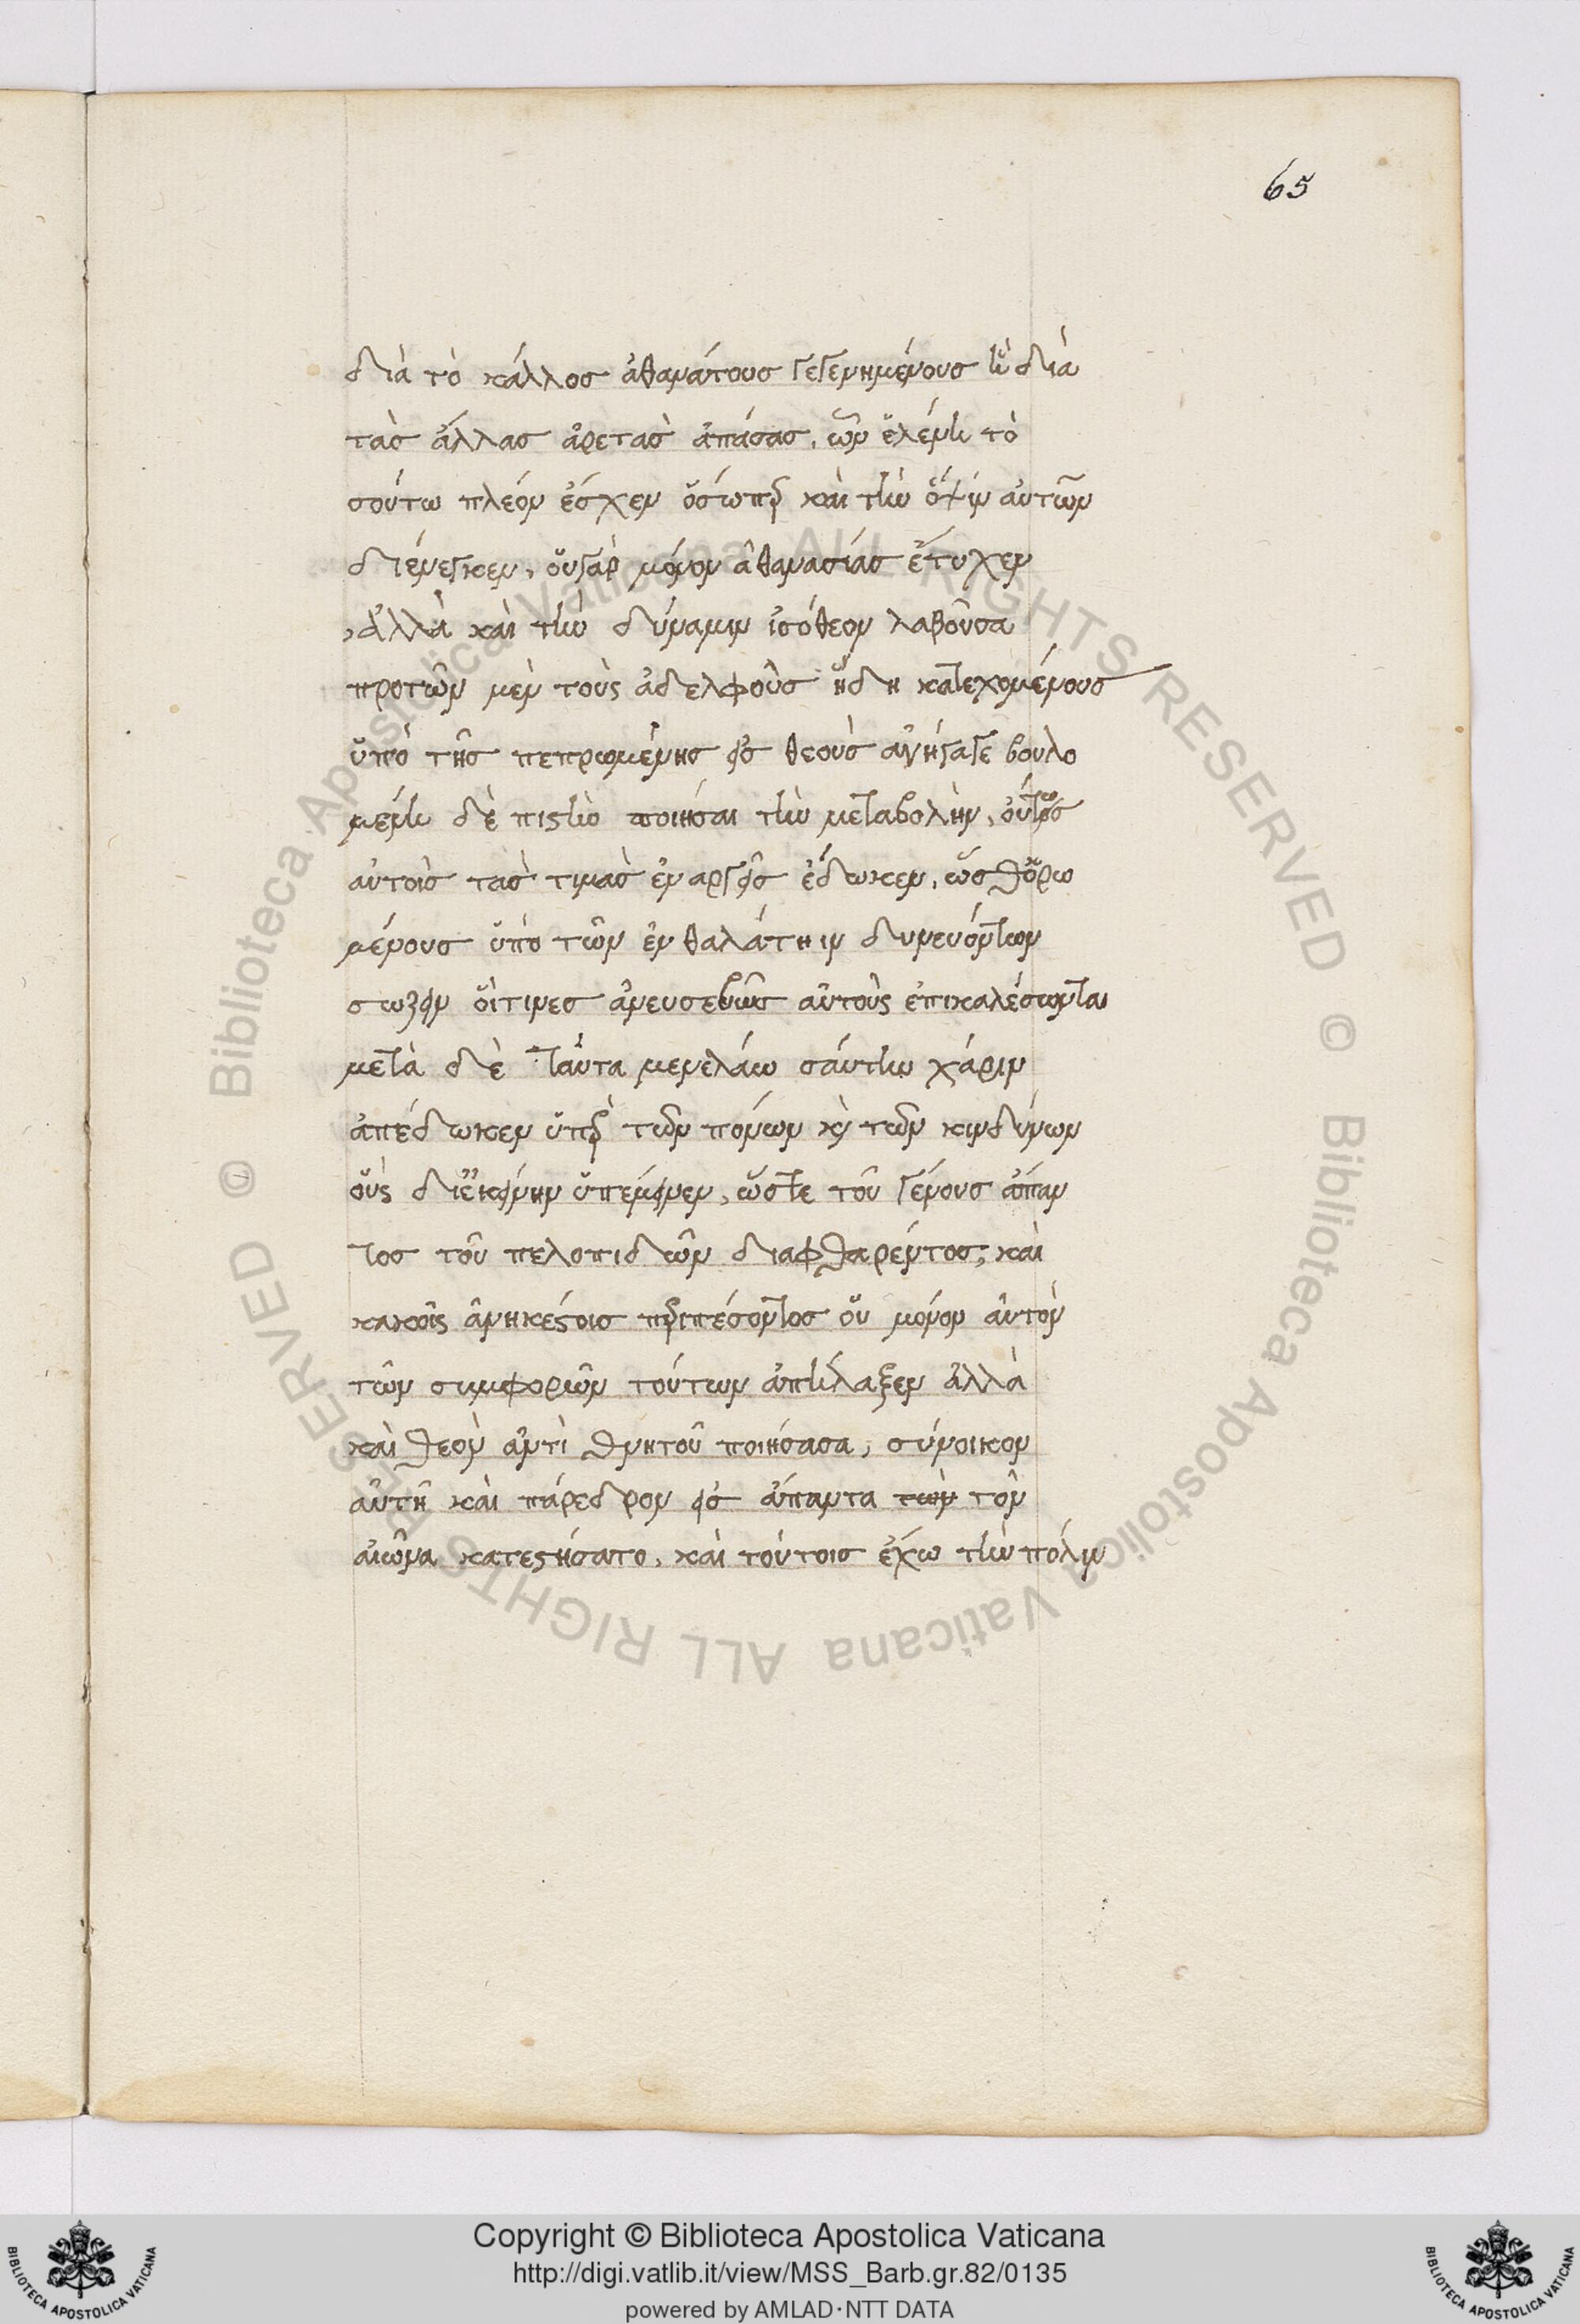 65
διὰ τὸ κάλλος ἀθανάτους γεγενημένους ἢ διὰ
τὰς ἄλλας ἀρετὰς ἁπάσας, ὧν ἑλένη το
σούτω πλέον ἔσχεν ὅσωπερ καὶ τὴν ὄψιν αὐτῶν
διένεγκεν, οὐ γὰρ μόνον ἀθανασίας ἔτυχεν
ἀλλὰ καὶ τὴν δύναμιν ἰσόθεον λαβοῦσα
προτῶν μὲν τοὺς ἀδελφοὺς ἤδη κατεχομένους
ὑπὸ τῆς πεπρωμένης εἰς θεοὺς ἀνήγαγε βουλο
μένη δὲ πιστὴν ποιῆσαι τὴν μεταβολὴν, οὕτως
αὐτοῖς τὰς τιμὰς ἐναργεῖς ἔδωκεν, ὥσθ' ὁρω
μένους ὑπὸ τῶν ἐν θαλάττηιν δυνευόντων
σώζειν οἵτινες ἀνευσεβῶς αὐτοὺς ἐπικαλέσωνται
μετὰ δὲ ταῦτα μενελάω σαύτην χάριν
ἀπέδωκεν ὑπὲρ τῶν πόνων καὶ τῶν κινδύνων
οὓς διεκείνην ὑπέμεινεν, ὥστε τοῦ γένους ἅπαν
τος τοῦ πελοπιδῶν διαφθαρέντος, καὶ
κακοῖς ἀνηκέστοις περιπέσοντος οὐ μόνον αὐτὸν
τῶν συμφορῶν τούτων ἀπήλαξεν ἀλλὰ
καὶ θεὸν ἀντὶ θνητοῦ ποιήσασα, σύνοικον
αὐτῆ καὶ πάρεδρον εἰς ἅπαντα τὼν τὸν
αἰῶνα κατεστήσατο, καὶ τούτοις ἔχω τὴν πόλιν
Biblioteca Apostolica Vaticana ALL RIGHTS RESERVED © Biblioteca Apostolica Vaticana ALL RIGHTS RESERVED ©
Copyright © Biblioteca Apostolica Vaticana
http://digi.vatlib.it/view/MSS_Barb.gr.82/0135
powered by AMLAD·NTT DATA
BIBLIOTECA APOSTOLICA VATICANA
BIBLIOTECA APOSTOLICA VATICANA